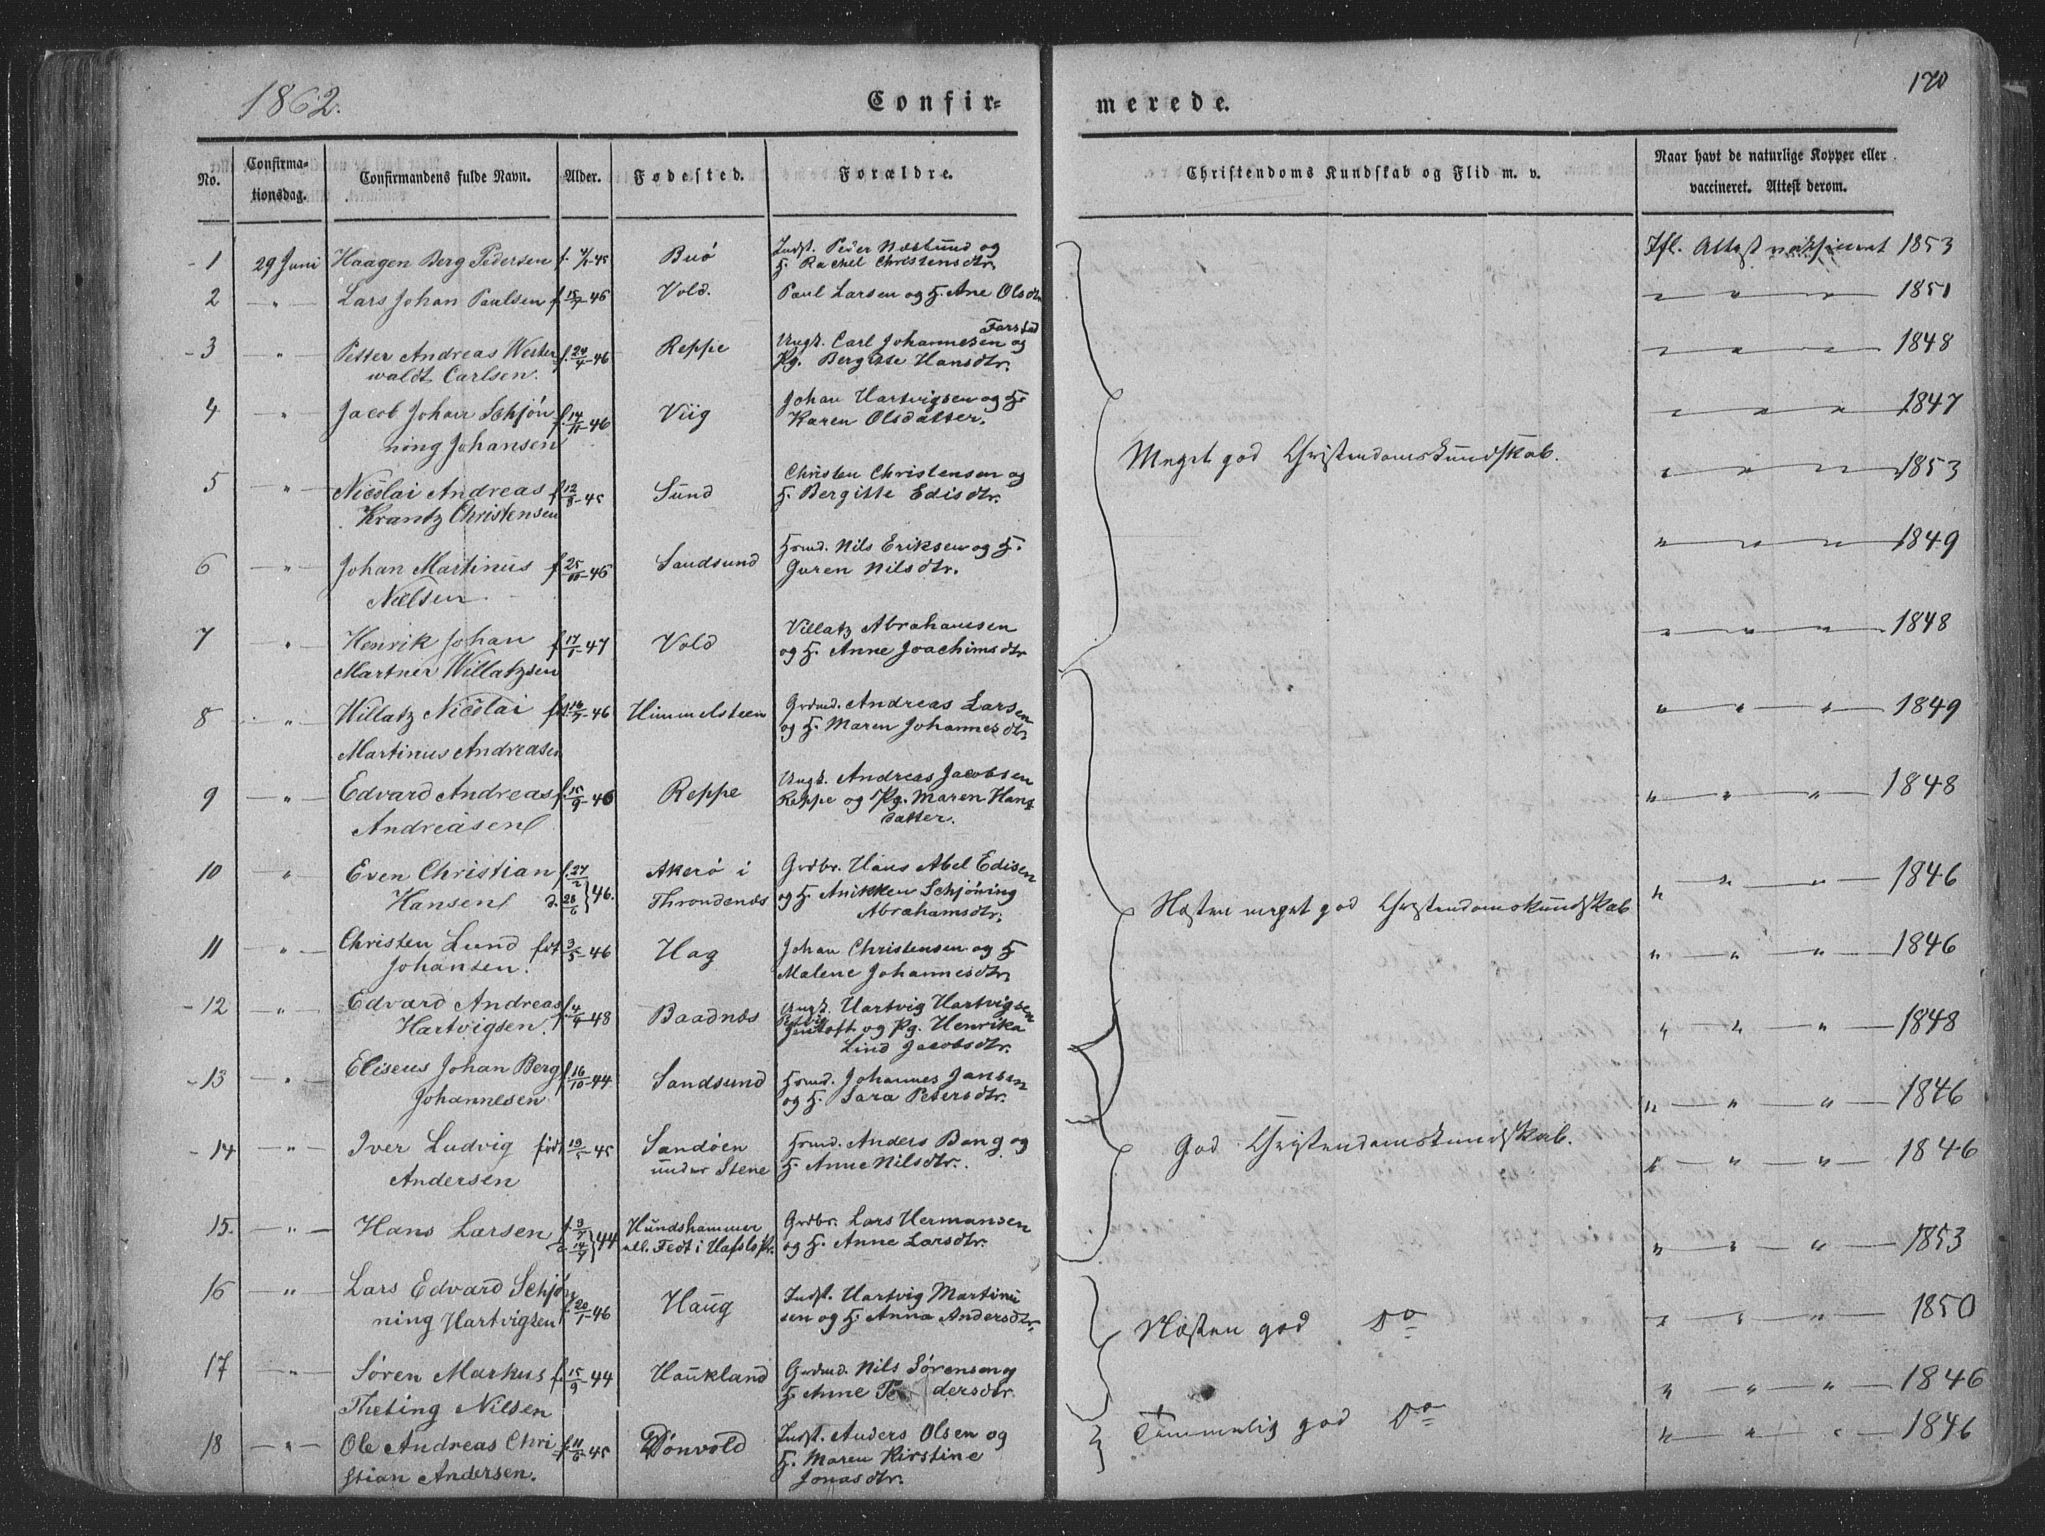 170
1862.
Confir-
merede.
No.
Confirma-
tionsdag.
Confirmandens fulde Navn.
Alder.
Fødested.
Forældre.
Christendoms Kundskab og Flid m. v.
Naar havt de naturlige Kopper eller
vaccineret. Attest derom.
1 29 Juni Haagen Berg Pedersen Buö Indst. Peder Næstund og
H. Rachel Christensdtr. Ifl. Attest 1853
2 — " — Lars Johan Paulsen f. 15/7-46 Vold. Paul Larsen og H. Ane Olsdtr 1851
3 " Petter Andreas Wester f. 24/4-46 Reppe Ungk. Carl Johannesen Farstad og 1848
waldt Carlsen. Pg. Bergitte Hansdtr.
4 " Jacob Johan Schjön f. 14/11-46 Viig Johan Hartvigsen og H. 1847
ning Johansen Karen Olsdatter.
5 — " — Nicolai Andreas f. 12/8-45 Sund Christen Christensen og 1853
Krantz Christensen H. Bergitte Edisdtr.
6 — " — Johan Martinus Sandsund Hsmd. Nils Eriksen og H. 1849
Nielsen Guren Nilsdtr.
7 " Henrik Johan f. 17/1-47 Vold Villatz Abrahamsen 1848
Martner Willatzsen og H. Anne Joachimsdtr
8 " Willatz Nicolai Himmelsteen Grdmd. Andreas Larsen 1849
Martinus Andreasen og H. Maren Johannesdtr.
9 — " — Edvard Andreas f. 15/9-46 Reppe Ungk. Andreas Jacobsen 1848
Andreasen Reppe og Pg. Maren Hans
datter.
10 " Even Christian f. 27/2 Akerö i Grdbr. Hans Abel Edisen 1846
Hansen d. 28/6 } 46. Throndenæs og H. Anikken Schjöning
Abrahamsdtr.
11 — " — Christen Lund föt 3/5-46 Hag Johan Christensen og H 1846
Johansen. Malene Johannesdtr
12 — " — Edvard Andreas f. 4/4-48 Baadnæs Ungk. Hartvig Hartvigsen 1848
Hartvigsen og Pg. Henrika
Lind Jacobsdtr.
13 — " — Eliseus Johan Berg f. 16/10-44 Sandsund Hsmd. Johannes Jansen 1846
Johannesen og H. Sara Petersdtr.
14 — " — Iver Ludvig Sandöen Hsmd. Anders Bang og 1846
Andersen under Stene H. Anne Nilsdtr.
15. — " — Hans Larsen 44 Hundshammer Grdbr. Lars Hermansen 1853
Fedt i og H. Anne Larsdtr.
16 — " — Lars Edvard Schjön f. 20/1-46 Haug Indst. Hartvig Martinu 1850
ning Hartvigsen sen og H. Anna Andersdtr.
17 — " — Sören Markus f. 15/9-44 Haukland Grdmd. Nils Sörensen og 1846
Theting Nilsen H. Anne dersdtr.
18 — " — Ole Andreas Chri f. 11/6-45 Dönvold Indst. Anders Olsen og 1846
stian Andersen. H. Maren Kirstine
Jonasdtr.
Meget god Christendomskundskab.
Næsten meget god Christendomskundskab
God Christendomskundskab.
Næsten god Do
Temmelig god Do